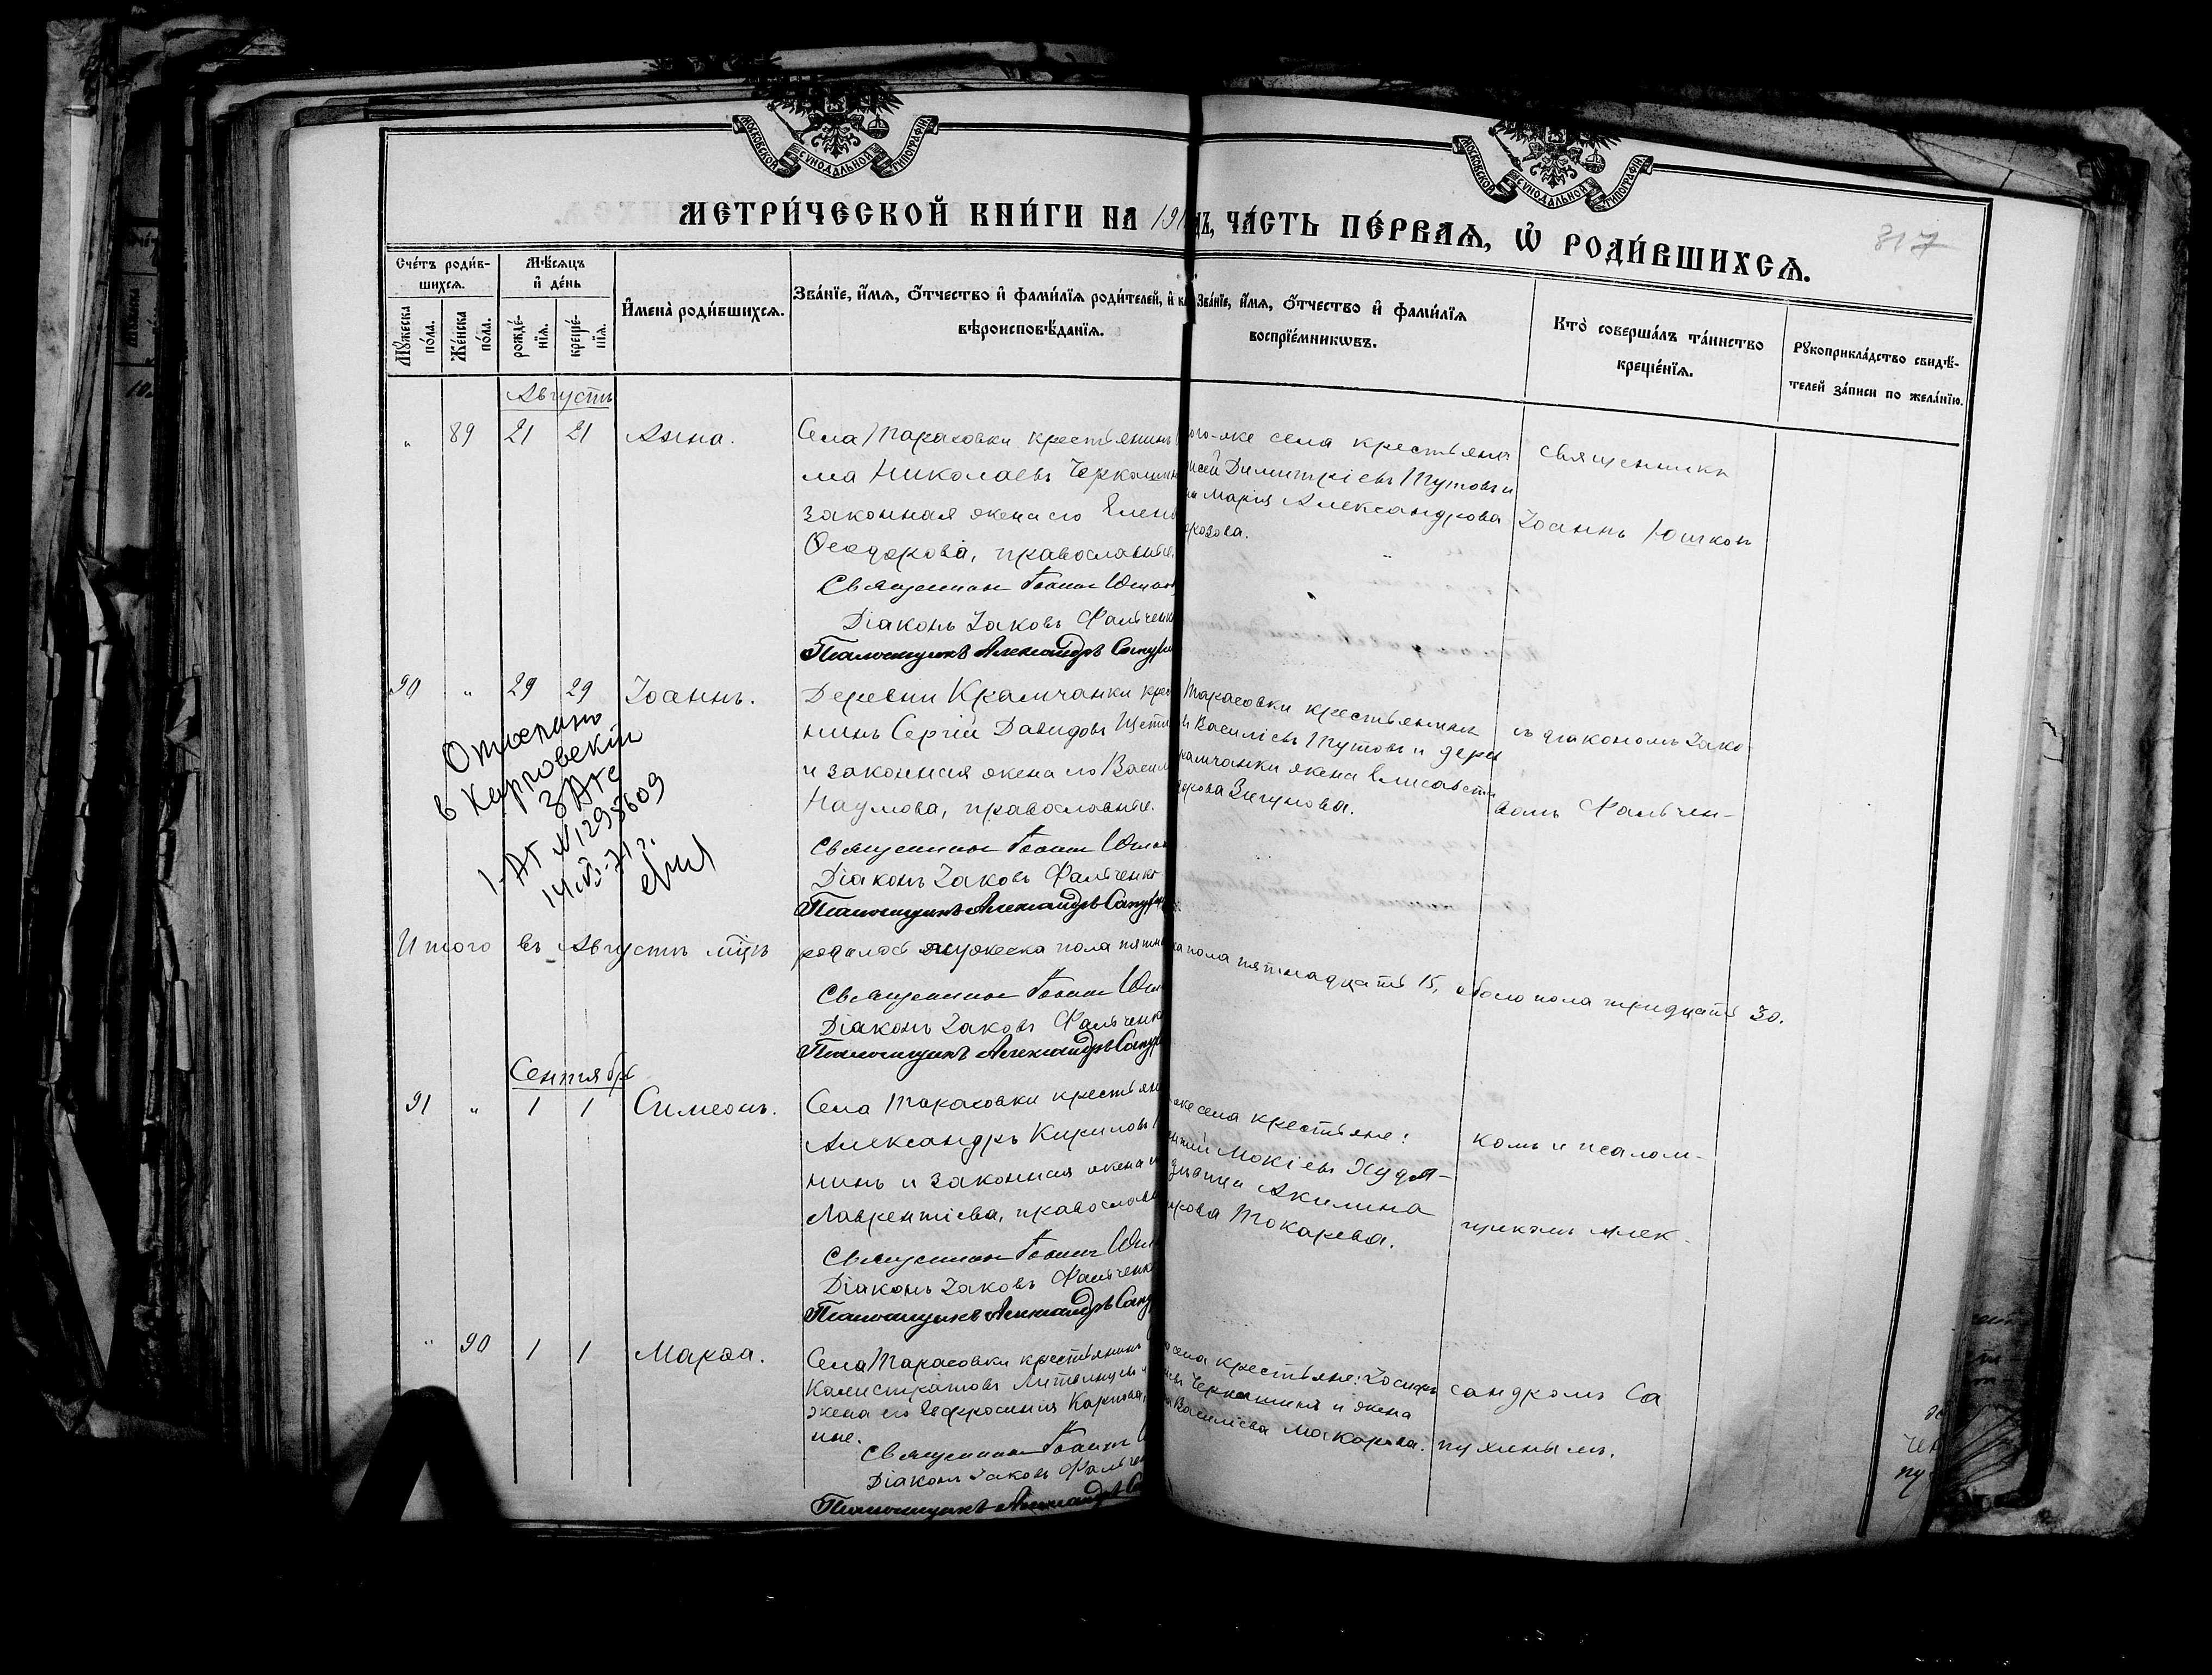 МОСКОВСКОЙ СѴНОДАЛЬНОЙ ТИПОГРАФІИ
МОСКОВСКОЙ СѴНОДАЛЬНОЙ ТИПОГРАФІИ
МЕТРИ́ЧЕСКОЙ КНИ́ГИ НА 191 ДЪ, ЧА́СТЬ ПЕ́РВАѦ, Ѡ҆ РОДИ́ВШИХСѦ.
317
Сче́тъ роди́в-
шихсѧ.
Мѣ́сѧцъ
и҆ де́нь
Мꙋ́жеска по́ла.
Же́нска по́ла.
рожде́-нїѧ.
креще́-нїѧ.
И҆мена̀ роди́вшихсѧ.
Зва́нїе, и҆́мѧ, ѻ҆́тчество и҆ фами́лїѧ роди́телей, и҆
вѣроисповѣ́данїѧ.
Зва́нїе, и҆́мѧ, ѻ҆́тчество и҆ фами́лїѧ
воспрїе́мникѡвъ.
Кто̀ соверша́лъ та́инство
креще́нїѧ.
Рꙋкоприкла́дство свидѣ́-
телей за́писи по жела́нїю.
Августъ
" 89 21 21 Анна.
Села Тарасовки крестьянинъ
ма Николаевъ Черкашин
законная жена его Елен
Ѳеодорова, православные.
Священникъ Іоаннъ Юшков
Діаконъ Іаковъ Фальченко
Псаломщикъ Александръ Сапухин
ого-же села крестьяне
исей Димитріевъ Тутовъ и
на Марія Александрова
розова.
священникъ
Іоаннъ Юшковъ
90 " 29 29 Іоаннъ.
Деревни Крамчанки крес
нинъ Сергій Давидовъ Щети
и законная жена его Васил
Наумова, православные.
Священникъ Іоаннъ Юшков
Діаконъ Іаковъ Фальченко
Псаломщикъ Александръ Сапухин
Тарасовки крестьянинъ
ъ Василіевъ Тутовъ и дерев
рамчанки жена Елисавета
дорова Зигунова.
съ діакономъ Іако-
вомъ Фальчен-
в
ЗАГС
1-АГ № 298609
Итого въ Августѣ м͠цѣ родилось мужеска пола пятна
ка пола пятнадцать 15, обоего пола тридцать 30.
Священникъ Іоаннъ Юшк
Діаконъ Іаковъ Фальченко
Псаломщикъ Александръ Сапух
Сентябрь
91 " 1 1 Симеонъ.
Села Тарасовки крестьян
Александръ Кириловъ
нинъ и законная жена
Лаврентіева, православ
Священникъ Іоаннъ Юшк
Діаконъ Іаковъ Фальченк
Псаломщикъ Александръ Сапу
-же села крестьяне:
Мокіевъ Худя-
дѣвица Акилина
Токарева.
комъ и псалом-
щикомъ Алек-
" 90 1 1 Марѳа.
Села Тарасовки крестьянинъ
Калистратовъ Литвинцевъ и
жена его Евфросинія Карпова,
ные.
Священникъ Іоаннъ
Діаконъ Іаковъ Фальчен
Псаломщикъ Александръ Са
села крестьяне: Іосифъ
Черкашинъ и жена
Василіева Макарова.
сандромъ Са
пухинымъ.